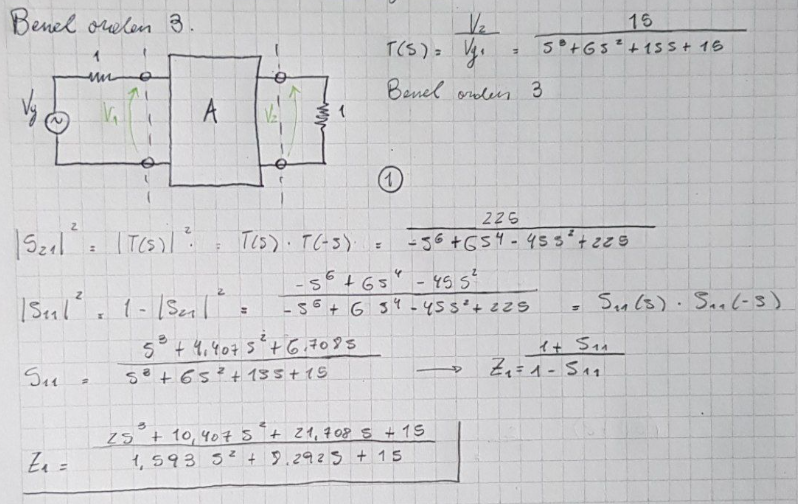 Benel orden 3.
T(S) = V2 / Vg1 = 15 / S³ + 6S² + 15S + 15
Benel orden 3
1
Vg
V1
A
V2
1
①
|S21|² = |T(S)|² = T(S) · T(-S) = 225 / -S⁶ + 6S⁴ - 45S² + 225
|S11|² = 1 - |S21|² = -S⁶ + 6S⁴ - 45S² / -S⁶ + 6S⁴ - 45S² + 225 = S11(S) · S11(-S)
S11 = S³ + 4,407 S² + 6,708S / S³ + 6S² + 15S + 15 → Z1 = 1 + S11 / 1 - S11
Z1 = 2S³ + 10,407 S² + 21,708 S + 15 / 1,593 S² + 8,292S + 15